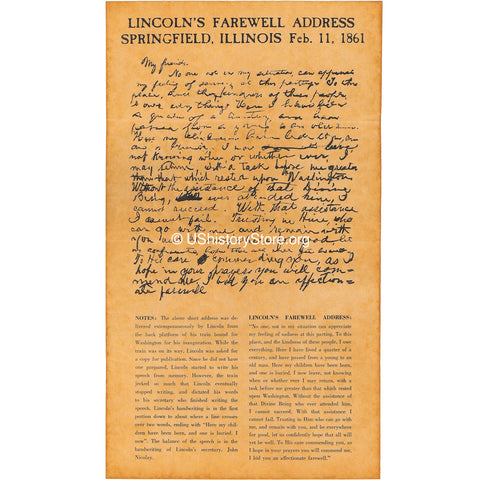 LINCOLN'S FAREWELL ADDRESS
SPRINGFIELD, ILLINOIS Feb. 11, 1861
My friends.
No one not in my situation, can appreciate
my feeling of sadness at this parting. To this
place, and the kindness of these people,
I owe every thing. Here I have lived
a quarter of a century, and have
passed from a young to an old man.
Here my children have been born, and one
is buried. I now leave,
not knowing when, or whether ever, I
may return, with a task before me greater
than that which rested upon Washington
Without the assistance of that Divine
Being, who ever attended him, I
cannot succeed. With that assistance
I cannot fail. Trusting in Him, who
can go with me, and remain with
you and
© UShistoryStore.org
be
confidently hope that all will yet be well
To His care commending you, as I
hope in your prayers you will com-
mend me, I bid you an affection-
ate farewell
NOTES: The above short address was de-
livered extemporaneously by Lincoln from
the back platform of his train bound for
Washington for his inauguration. While the
train was on its way, Lincoln was asked for
a copy for publication. Since he did not have
one prepared, Lincoln started to write his
speech from memory. However, the train
jerked so much that Lincoln eventually
stopped writing, and dictated his words
to his secretary who finished writing the
speech. Lincoln's handwriting is in the first
portion down to about where a line crosses
over two words, ending with "Here my chil-
dren have been born, and one is buried. I
now". The balance of the speech is in the
handwriting of Lincoln's secretary, John
Nicolay.
LINCOLN'S FAREWELL ADDRESS:
"No one, not in my situation can appreciate
my feeling of sadness at this parting. To this
place, and the kindness of these people, I owe
everything. Here I have lived a quarter of a
century, and have passed from a young to an
old man. Here my children have been born,
and one is buried. I now leave, not knowing
when or whether ever I may return, with a
task before me greater than that which rested
upon Washington. Without the assistance of
that Divine Being who ever attended him,
I cannot succeed. With that assistance I
cannot fail. Trusting in Him who can go with
me, and remain with you, and be everywhere
for good, let us confidently hope that all will
yet be well. To His care commending you, as
I hope in your prayers you will commend me,
I bid you an affectionate farewell."